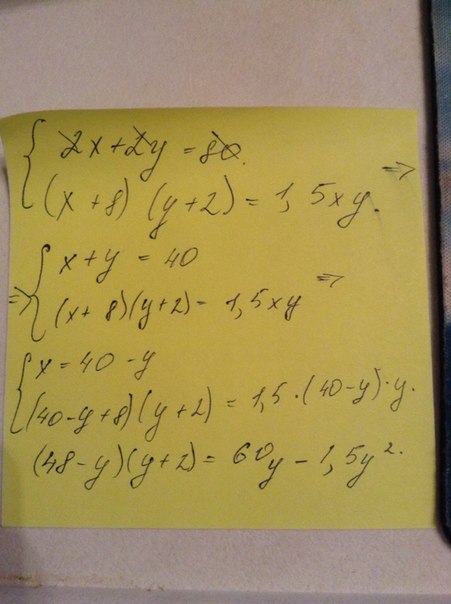 2x+2y = 80. ⇒
(x+8) (y+2) = 1,5xy.
x+y = 40
⇒ (x+8)(y+2) = 1,5xy ⇒
x=40-y
(40-y+8)(y+2) = 1,5·(40-y)·y.
(48-y)(y+2) = 60y - 1,5y².